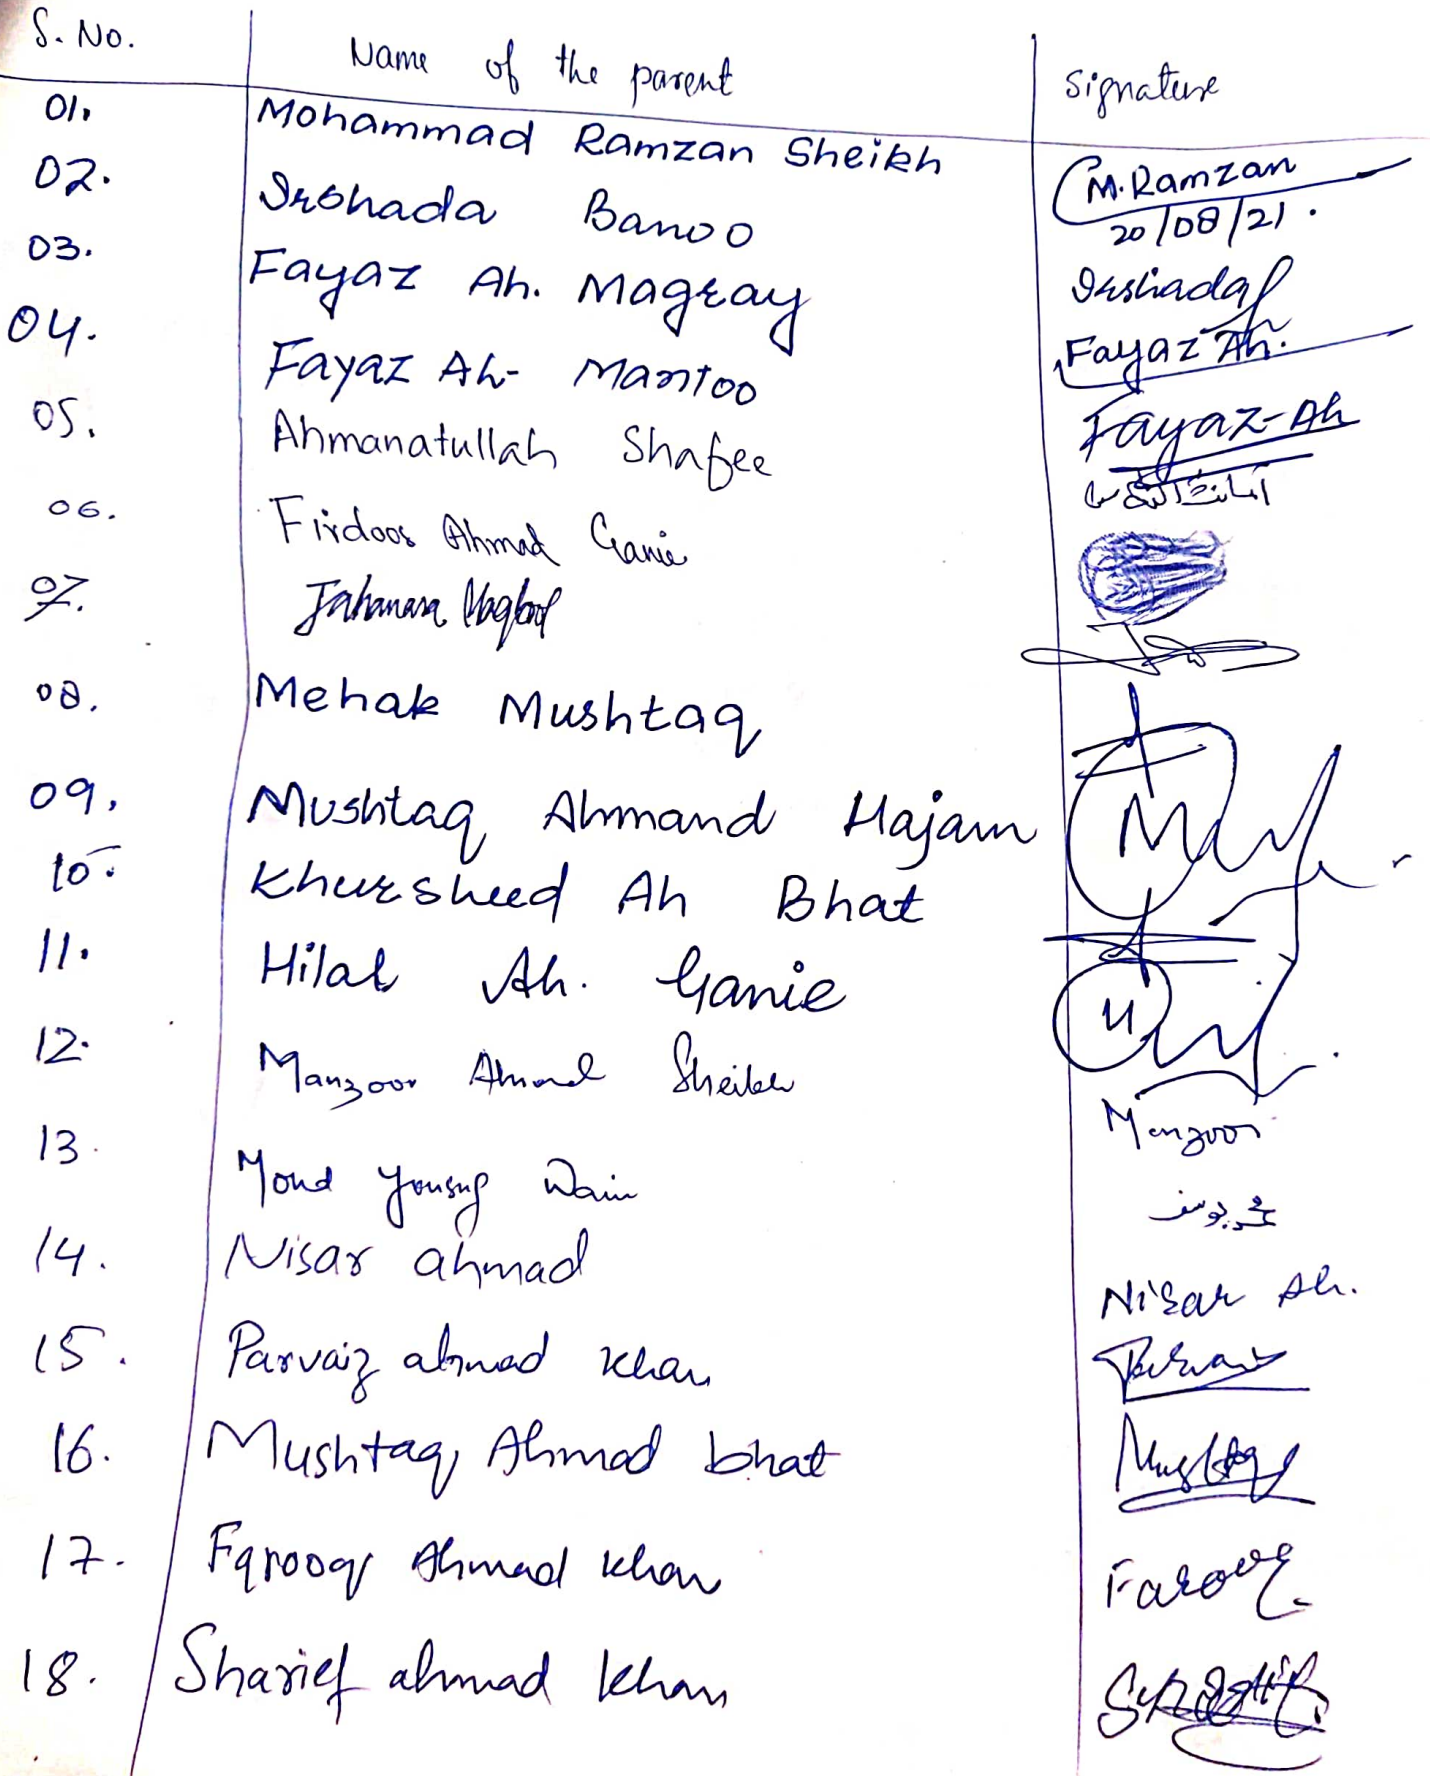 S. No. Name of the parent Signature
01. Mohammad Ramzan Sheikh M. Ramzan
20/08/21.
02. Irshada Banoo Irshada
03. Fayaz Ah. Magray Fayaz Ah.
04. Fayaz Ah- Mantoo Fayaz-Ah
05. Ahmanatullah Shafee
06. Firdoos Ahmad Ganie
07. Jahanara
08. Mehak Mushtaq
09. Mushtaq Ahmand Hajam
10. Khursheed Ah Bhat
11. Hilal Ah. Ganie
12. Manzoor Ahmad Sheikh Manzoor
13. Mohd Yousuf Wain محمد یوسف
14. Nisar ahmad Nisar Ah.
15. Parvaiz ahmad khan
16. Mushtaq Ahmad bhat Mushtaq
17. Farooq Ahmad khan Farooq
18. Sharief ahmad khan